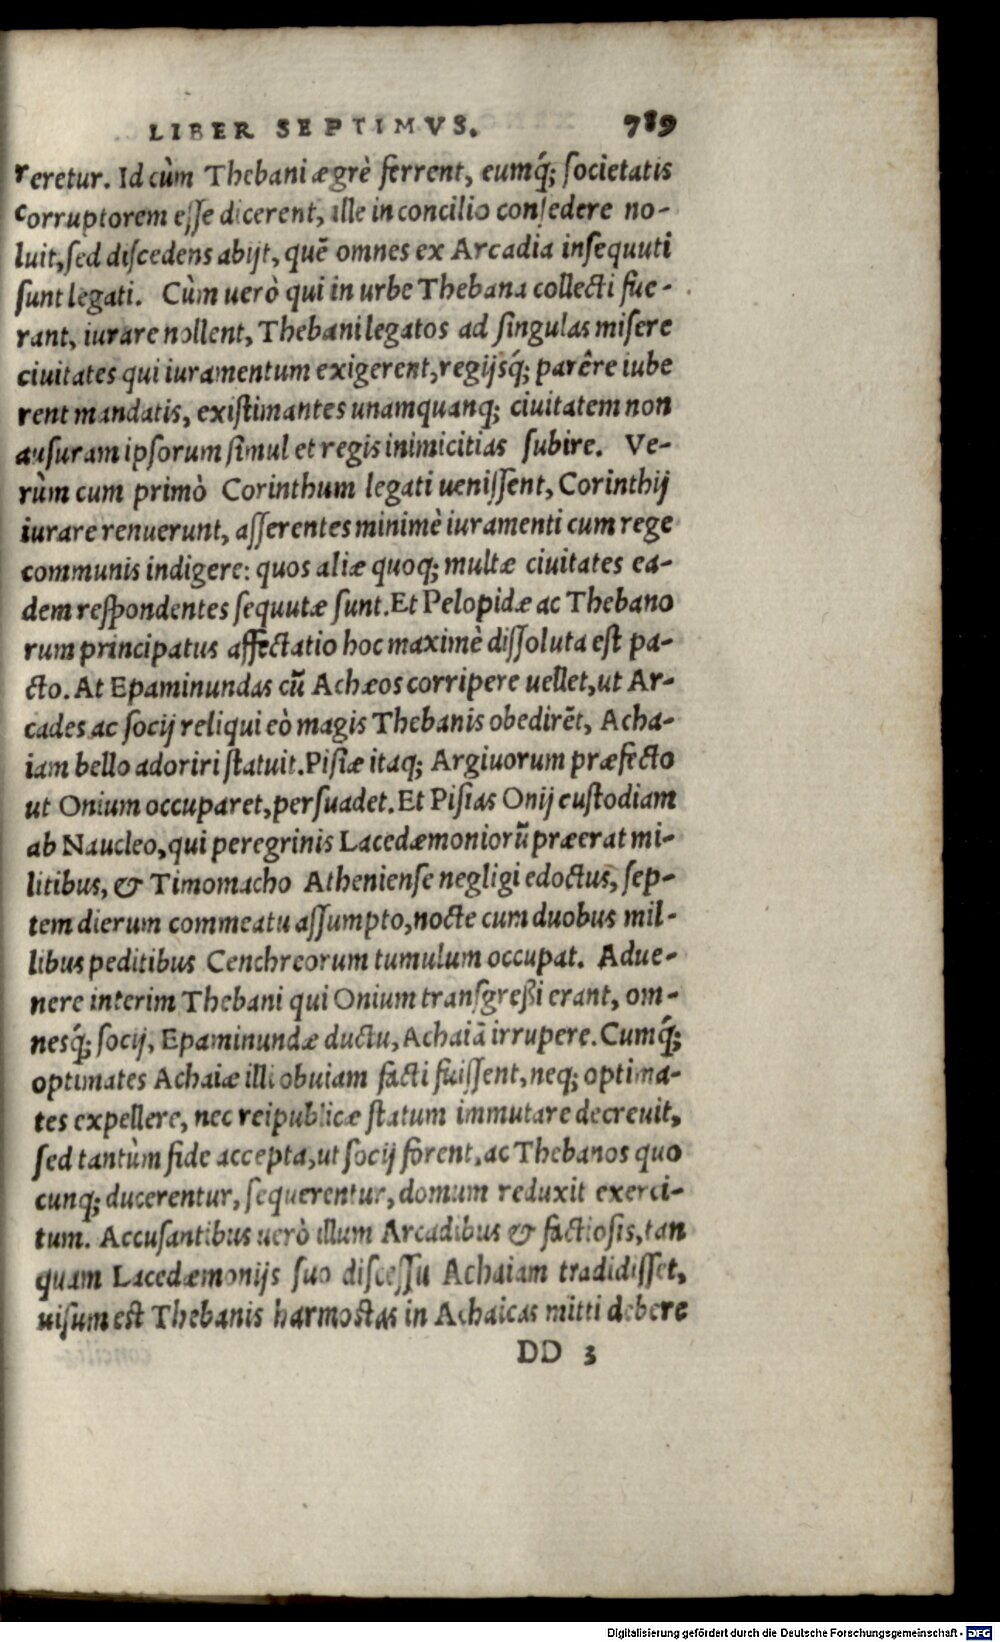 LIBER SEPTIMVS. 789
reretur. Id cùm Thebani ægrè ferrent, eumq́; societatis
corruptorem esse dicerent, ille in concilio consedere no-
luit, sed discedens abijt, quē omnes ex Arcadia insequuti
sunt legati. Cùm uerò qui in urbe Thebana collecti fue-
rant, iurare nollent, Thebani legatos ad singulas misere
ciuitates qui iuramentum exigerent, regijsq́; parêre iube
rent mandatis, existimantes unamquanq; ciuitatem non
ausuram ipsorum simul et regis inimicitias subire. Ve-
rùm cum primò Corinthum legati uenissent, Corinthij
iurare renuerunt, asserentes minimè iuramenti cum rege
communis indigere: quos aliæ quoq; multæ ciuitates ea-
dem respondentes sequutæ sunt. Et Pelopidæ ac Thebano
rum principatus affectatio hoc maximè dissoluta est pa-
cto. At Epaminundas cū Achæos corripere uellet, ut Ar-
cades ac socij reliqui eò magis Thebanis obedirēt, Acha-
iam bello adoriri statuit. Pisiæ itaq; Argiuorum præfecto
ut Onium occuparet, persuadet. Et Pisias Onij custodiam
ab Naucleo, qui peregrinis Lacedæmoniorū præerat mi-
litibus, & Timomacho Atheniense negligi edoctus, sep-
tem dierum commeatu assumpto, nocte cum duobus mil-
libus peditibus Cenchreorum tumulum occupat. Adue-
nere interim Thebani qui Onium transgreßi erant, om-
nesq́; socij, Epaminundæ ductu, Achaiā irrupere. Cumq́;
optimates Achaiæ illi obuiam facti fuissent, neq; optima-
tes expellere, nec reipublicæ statum immutare decreuit,
sed tantùm fide accepta, ut socij forent, ac Thebanos quo
cunq; ducerentur, sequerentur, domum reduxit exerci-
tum. Accusantibus uerò illum Arcadibus & factiosis, tan
quam Lacedæmonijs suo discessu Achaiam tradidisset,
uisum est Thebanis harmostas in Achaicas mitti debere
DD 3
Digitalisierung gefördert durch die Deutsche Forschungsgemeinschaft - DFG